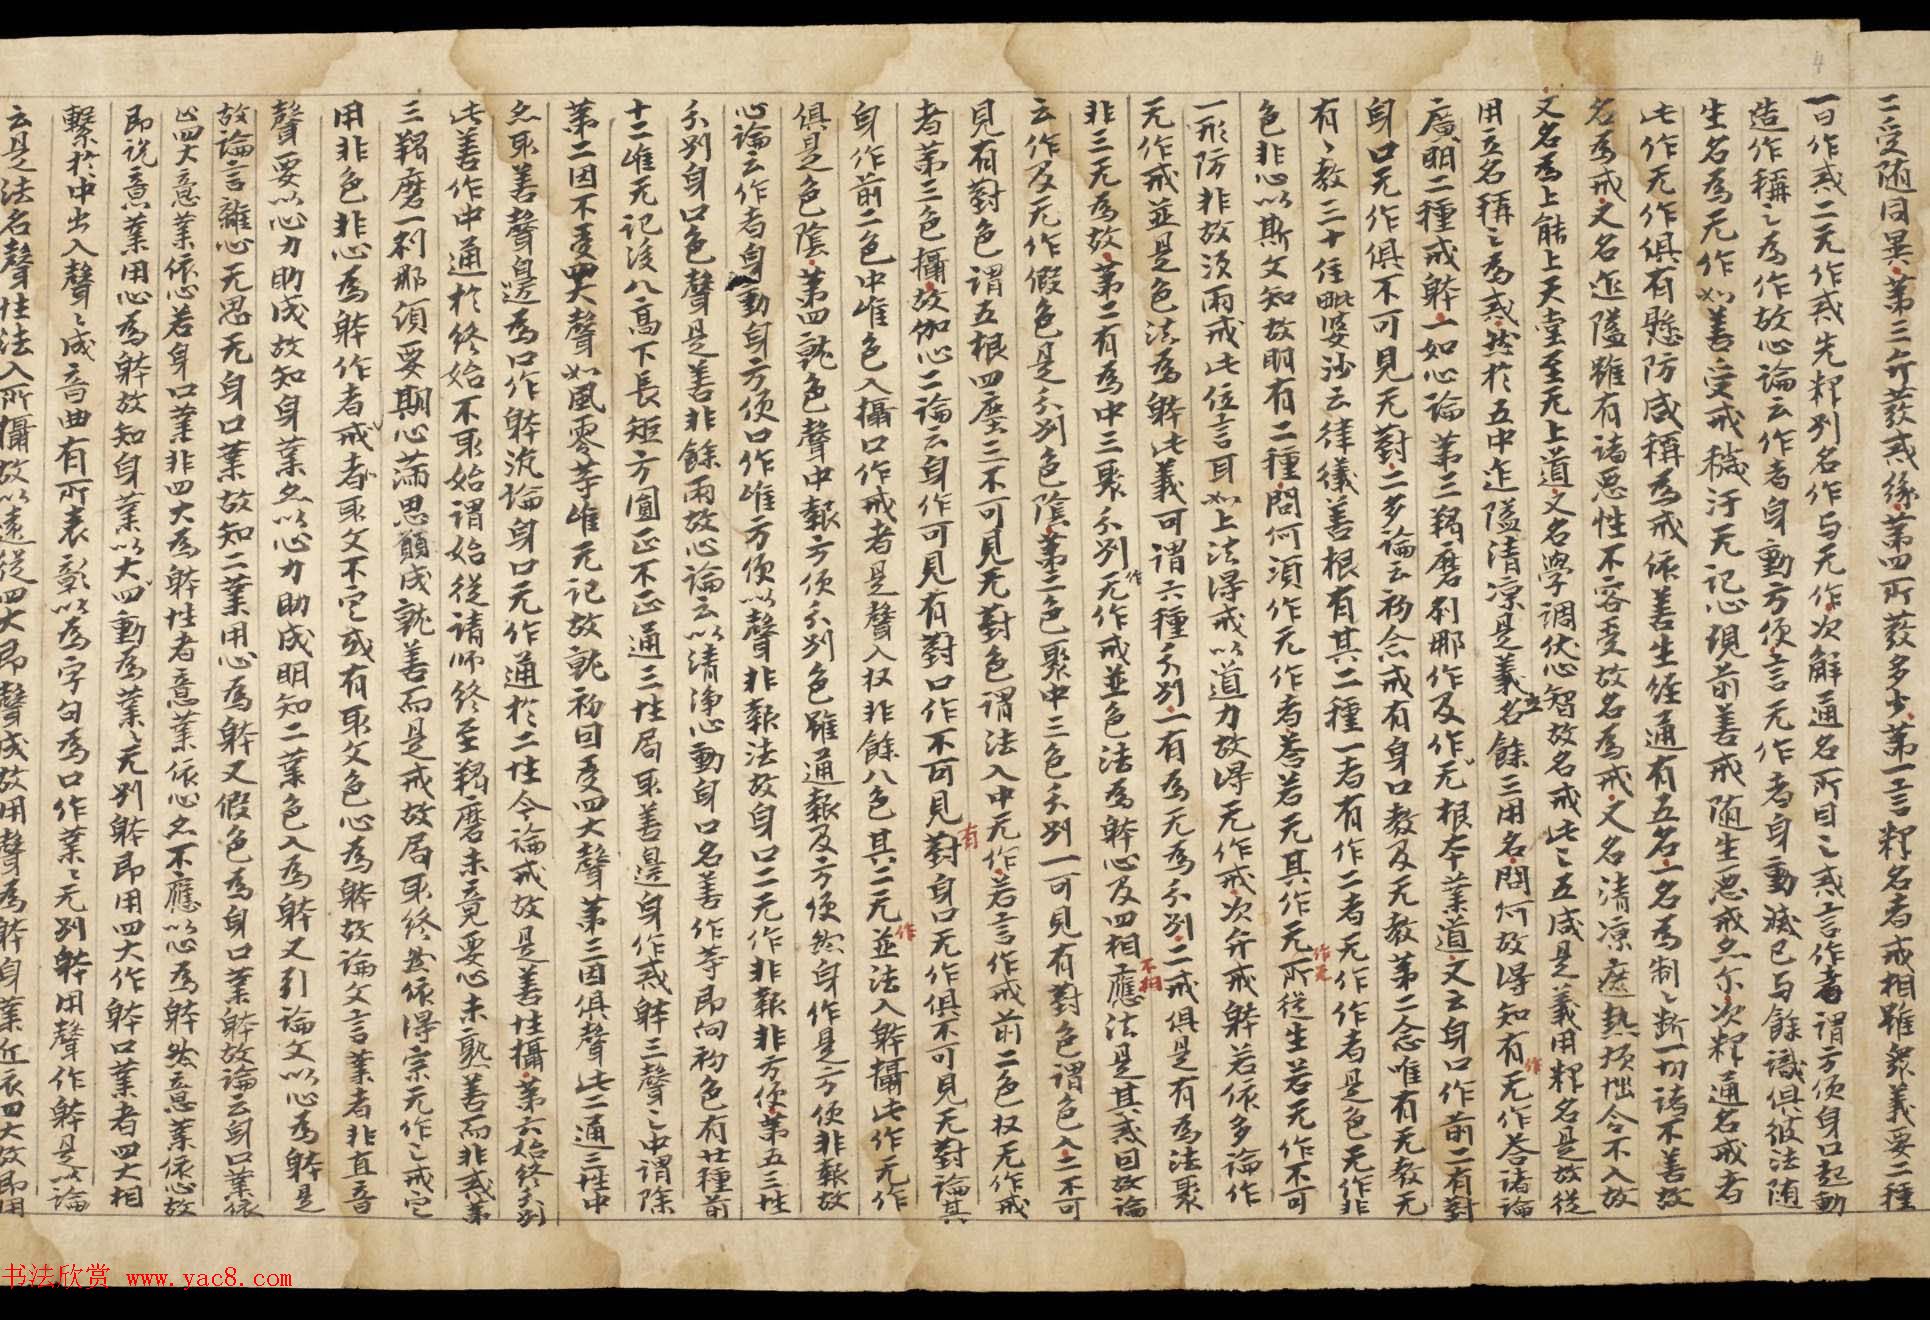 二受隨同異第三弁發戒緣第四所發多少第一言釋名者戒相雖衆義要二種
一曰作戒二无作戒先釋別名作与无作次解通名所目之戒言作者謂方便身口起動
造作稱之為作故心論云作者身動方便言无作者身動滅已与餘識俱彼法隨
生名為无作如善受戒穢汙无記心現前善戒隨生惡戒亦尔次釋通名戒者
此作无作俱有懸防咸稱為戒依善生經通有五名一名為制々斷一切諸不善故
名為戒又名迮隘雖有諸惡性不容受故名為戒又名清涼遮熱煩惱令不入故
又名為上能上天堂至无上道又名學調伏心智故名戒此之五咸是義用釋名是故從
用立名稱之為戒然於五中迮隘清涼是義立名餘三用名問何故得知有无作答諸論
廣明二種戒躰一如心論第三羯磨刹那作及作无根本業道又云身口作前二有對
身口无作俱不可見无對二多論云初念戒有身口教及无教第二念唯有无教无
有々教三十住毗婆沙云律儀善根有其二種一者有作二者无作作者是色无作非
色非心以斯文知故明有二種問何須作无作者答若无其作无作无所從生若无作不可
一形防非故須兩戒此位言耳如上法得戒以道力故得无作戒次弁戒躰若依多論作
无作戒並是色法為躰此義可謂六種分別一有為无為分別二戒俱是有為法聚
非三无為故第二有為中三聚分別作无作戒並色法為躰心及四不相應法是其戒因故論
云作及无作假色是分別色陰第二色聚中三色分別一可見有對色謂色入二不可
見有對色謂五根四塵三不可見无對色謂法入中无作若言作戒前二色扠无作戒
者第三色攝故伽心二論云身作可見有對口作不可見有對身口无作俱不可見无對論其
身作前二色中唯色入攝口作戒者是聲入扠非餘八色其二无作並法入躰攝此作无作
俱是色陰第四就色聲中報方便分別色雖通報及方便然身作是方便非報故
心論云作者身動身方便口作唯方便以聲非報法故身口二无作非報非方便第五三性
分別身口色聲是善非餘兩故心論云以清淨心動身口名善作等即向初色有廿種前
十二唯无記後八高下長矩方圓正不正通三性局取善是身作戒躰三聲之中謂除
第二因不受四大聲如風零等唯无記故就初回受四大聲第三因俱聲此二通三性中
亦取善聲自邊為口作躰汎論身口元作通於二性今論戒故是善性攝第六始終分別
此善作中通於終始不取始謂始從請師終至羯磨未竟要心未熟善而非戒第
三羯磨一刹那須要期心滿思願成就善而是戒故局取終然依得宗元作之戒定
用非色非心為躰作者戒者取文不定或有取文色心為躰故論文言業者非直音
聲要以心力助成故知身業亦以心力助成明知二業色入為躰又引論文以心為躰是
故論言離心无思无身口業故知二業用心為躰又假色為身口業躰故論云身口業依
止四大意業依心若身口業非四大為躰性者意業依心亦不應以心為躰然意業依心故
即說意業用心為躰故知身業以大四動為業々无別躰即用四大作躰口業者四大相
繫於中出入聲々成音曲有所表彰以為字句為口作業々无別躰用聲作躰是以論
云是法名聲性法入所攝故以遠從四大即聲成故用聲為躰身業近依四大故即用